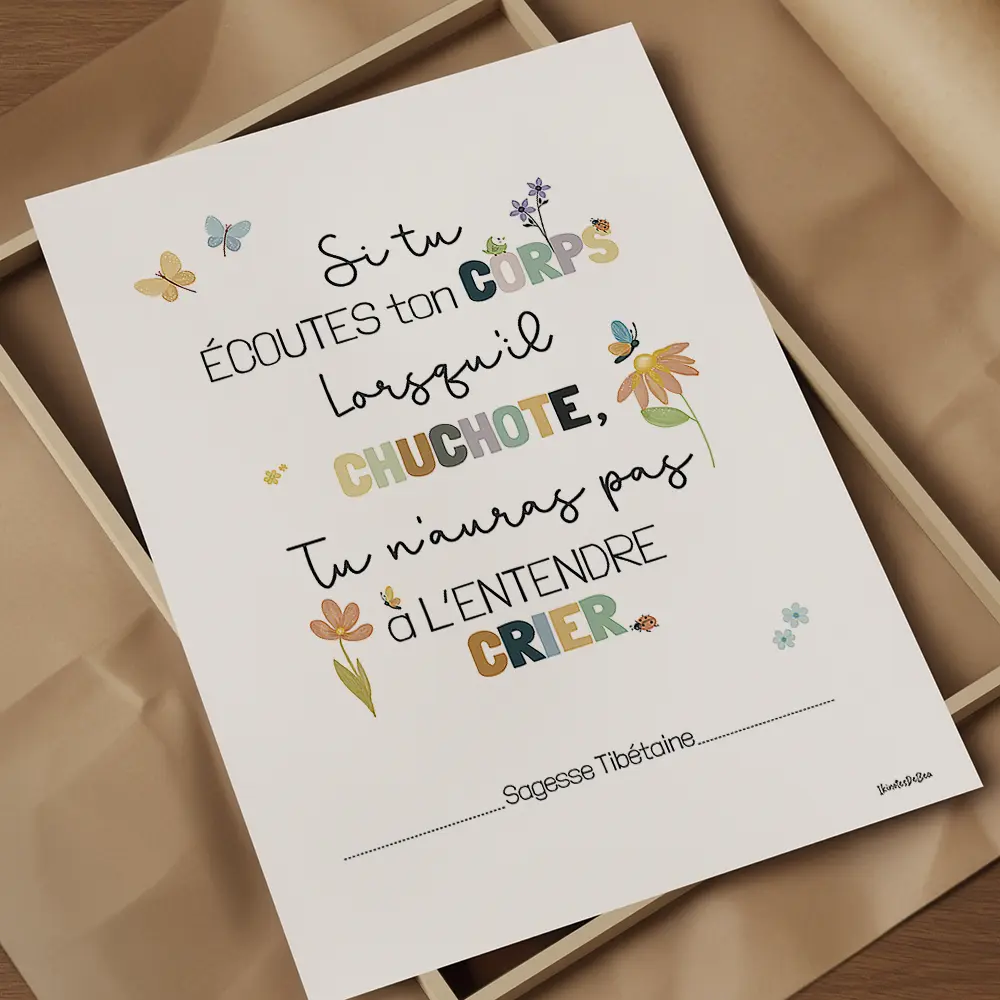 Si tu
ÉCOUTES ton CORPS
Lorsqu'il
CHUCHOTE,
Tu n'auras pas
à L'ENTENDRE
CRIER.
Sagesse Tibétaine